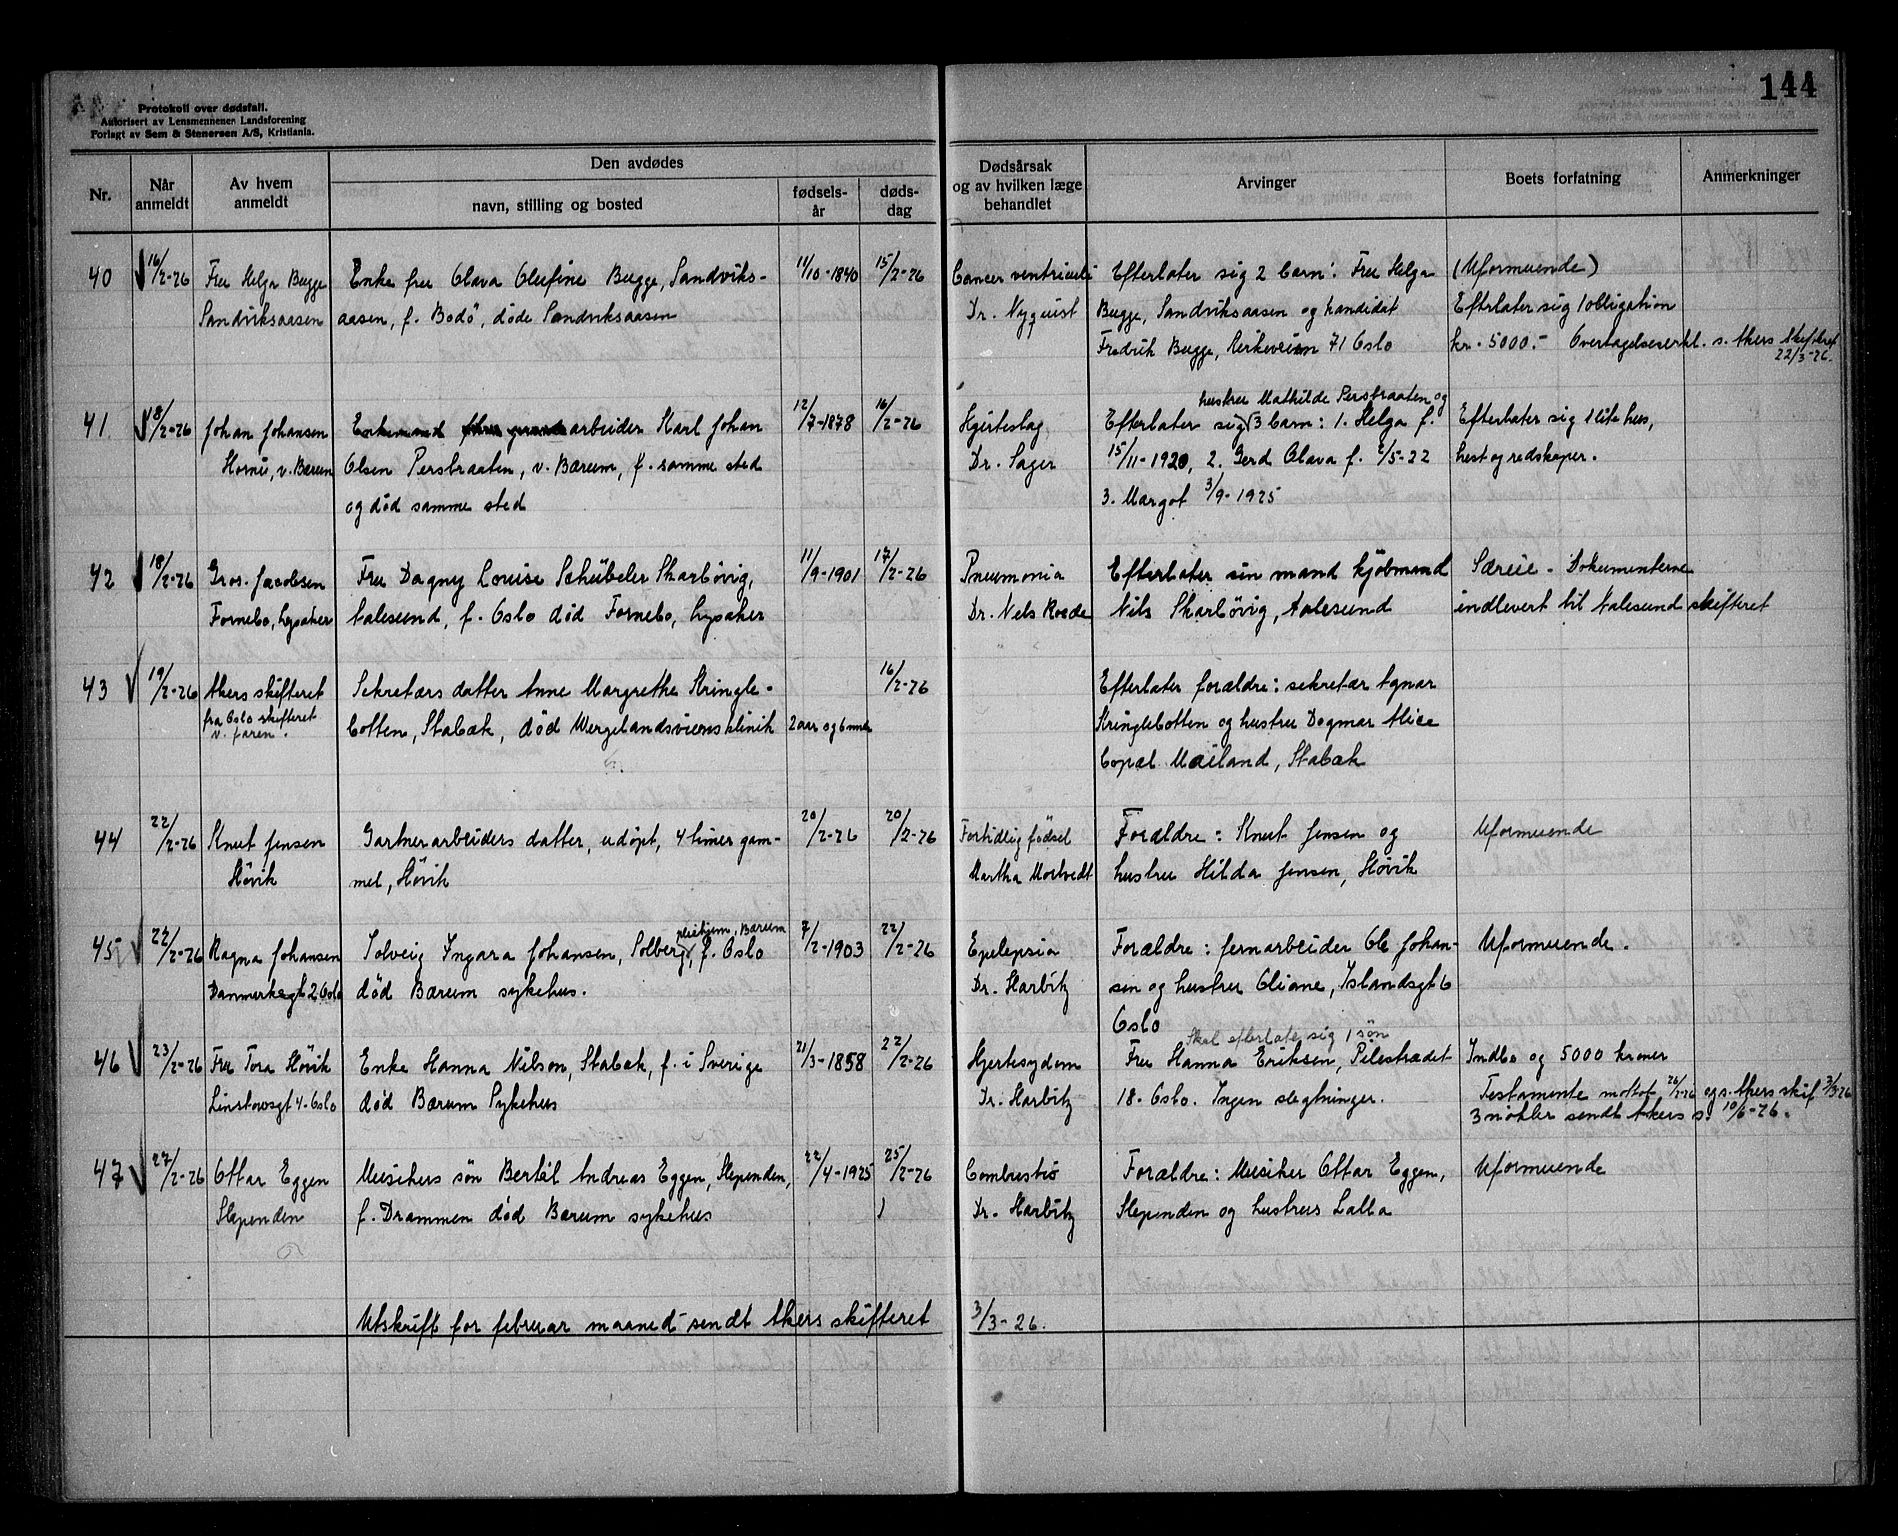 144
Protokoll over dødsfall.
Autorisert av Lensmennenes Landsforening
Forlagt av Sem & Stenersen A/S, Kristiania.
Nr.
Når anmeldt
Av hvem anmeldt
Den avdødes
navn, stilling og bosted
fødsels-år
døds-dag
Dødsårsak og av hvilken læge behandlet
Arvinger
Boets forfatning
Anmerkninger
40 16/2-26 Fru Helga Bugge Enke fru Olava Olufine Bugge, Sandviks- 11/10-1840 15/2-26 Cancer ventriculi Efterlater sig 2 barn: Fru Helga (Uformuende)
Sandviksaasen aasen, f. Bodö, døde Sandviksaasen Dr. Nyquist Bugge, Sandviksaasen og kandidat Efterlater sig 1 obligation
Fredrik Bugge, Kirkeveien 71 Oslo kr. 5000.- Overtagelseserkl. s. Akers skifteret
22/3-26.
hustru Mathilde Persbraaten og
41 18/2-26 Johan Johansen Enkemand arbeider Karl Johan 12/7-1878 16/2-26 Hjerteslag Efterlater sig 3 barn: 1. Helga f. Efterlater sig 1 lite hus,
v. Bærum Olsen Persbraaten, v. Bærum, f. samme sted Dr. Sager 15/11-1920, 2. Gerd Olava f. /5-22 hest og redskaper.
og död samme sted 3. Margot 3/9-1925
42 18/2-26 Gros. Jacobsen Fru Dagny Louise Schübeler Skarbövig, 11/9-1901 17/2-26 Pneumonia Efterlater sin mand kjöbmand Særeie - Dokumenterne
Fornebo, Lysaker Aalesund, f. Oslo död Fornebo, Lysaker Dr. Nels Roede Nils Skarbövig, Aalesund indlevert til Aalesund skifteret
43 19/2-26 Akers skifteret Sekretærs datter Anne Margrethe Kringle- 16/2-26 Efterlater forældre: sekretær Agnar
fra Oslo skifteret botten, Stabæk, död Wergelandsveiens klinik 2 aar og 6 mndr Kringlebotten og hustru Dagmar Alice
v. faren. Copæl Mailand, Stabæk
44 22/2-26 Knut Jensen Gartnerarbeiders datter, udøpt, 4 timer gam- 20/2-26 20/2-26 Fortidlig fødsel Forældre: Knut Jensen og Uformuende
Hövik mel, Hövik Martha Mortvedt hustru Hilda Jensen, Hövik
pleiehjem, Bærum
45 22/2-26 Ragna Johansen Solveig Ingara Johansen, Solberg, f. Oslo 7/2-1903 22/2-26 Epelepsia Forældre: jernarbeider Ole Johan- Uformuende.
Danmarksgt 2, Oslo død Bærum sykehus. Dr. Harbitz sen og hustru Oliane, Islandsgt 6
Oslo
Skal efterlate sig 1 sön
46 23/2-26 Fru Tora Hövik Enke Hanna Nilson, Stabæk, f. i Sverige 21/3-1858 22/2-26 Hjertesygdom Fru Hanna Eriksen, Pilestrædet Indbo og 5000 kroner
Linstowsgt 4. Oslo død Bærum Sykehus Dr. Harbitz 18. Oslo. Ingen slegtninger. Testamente mottat 26/2-26 og s. Akers skif. 3/3-26
3 nökler sendt Akers s. 10/6-26.
47 27/2-26 Ottar Eggen Musikers sön Bertil Andreas Eggen, Slependen, 22/4-1925 25/2-26 Combustio Forældre: Musiker Ottar Eggen, Uformuende
Slependen f. Drammen død Bærum sykehus Dr. Harbitz Slependen og hustrus Lalla
Utskrift for februar maaned sendt Akers skifteret 3/3-26.